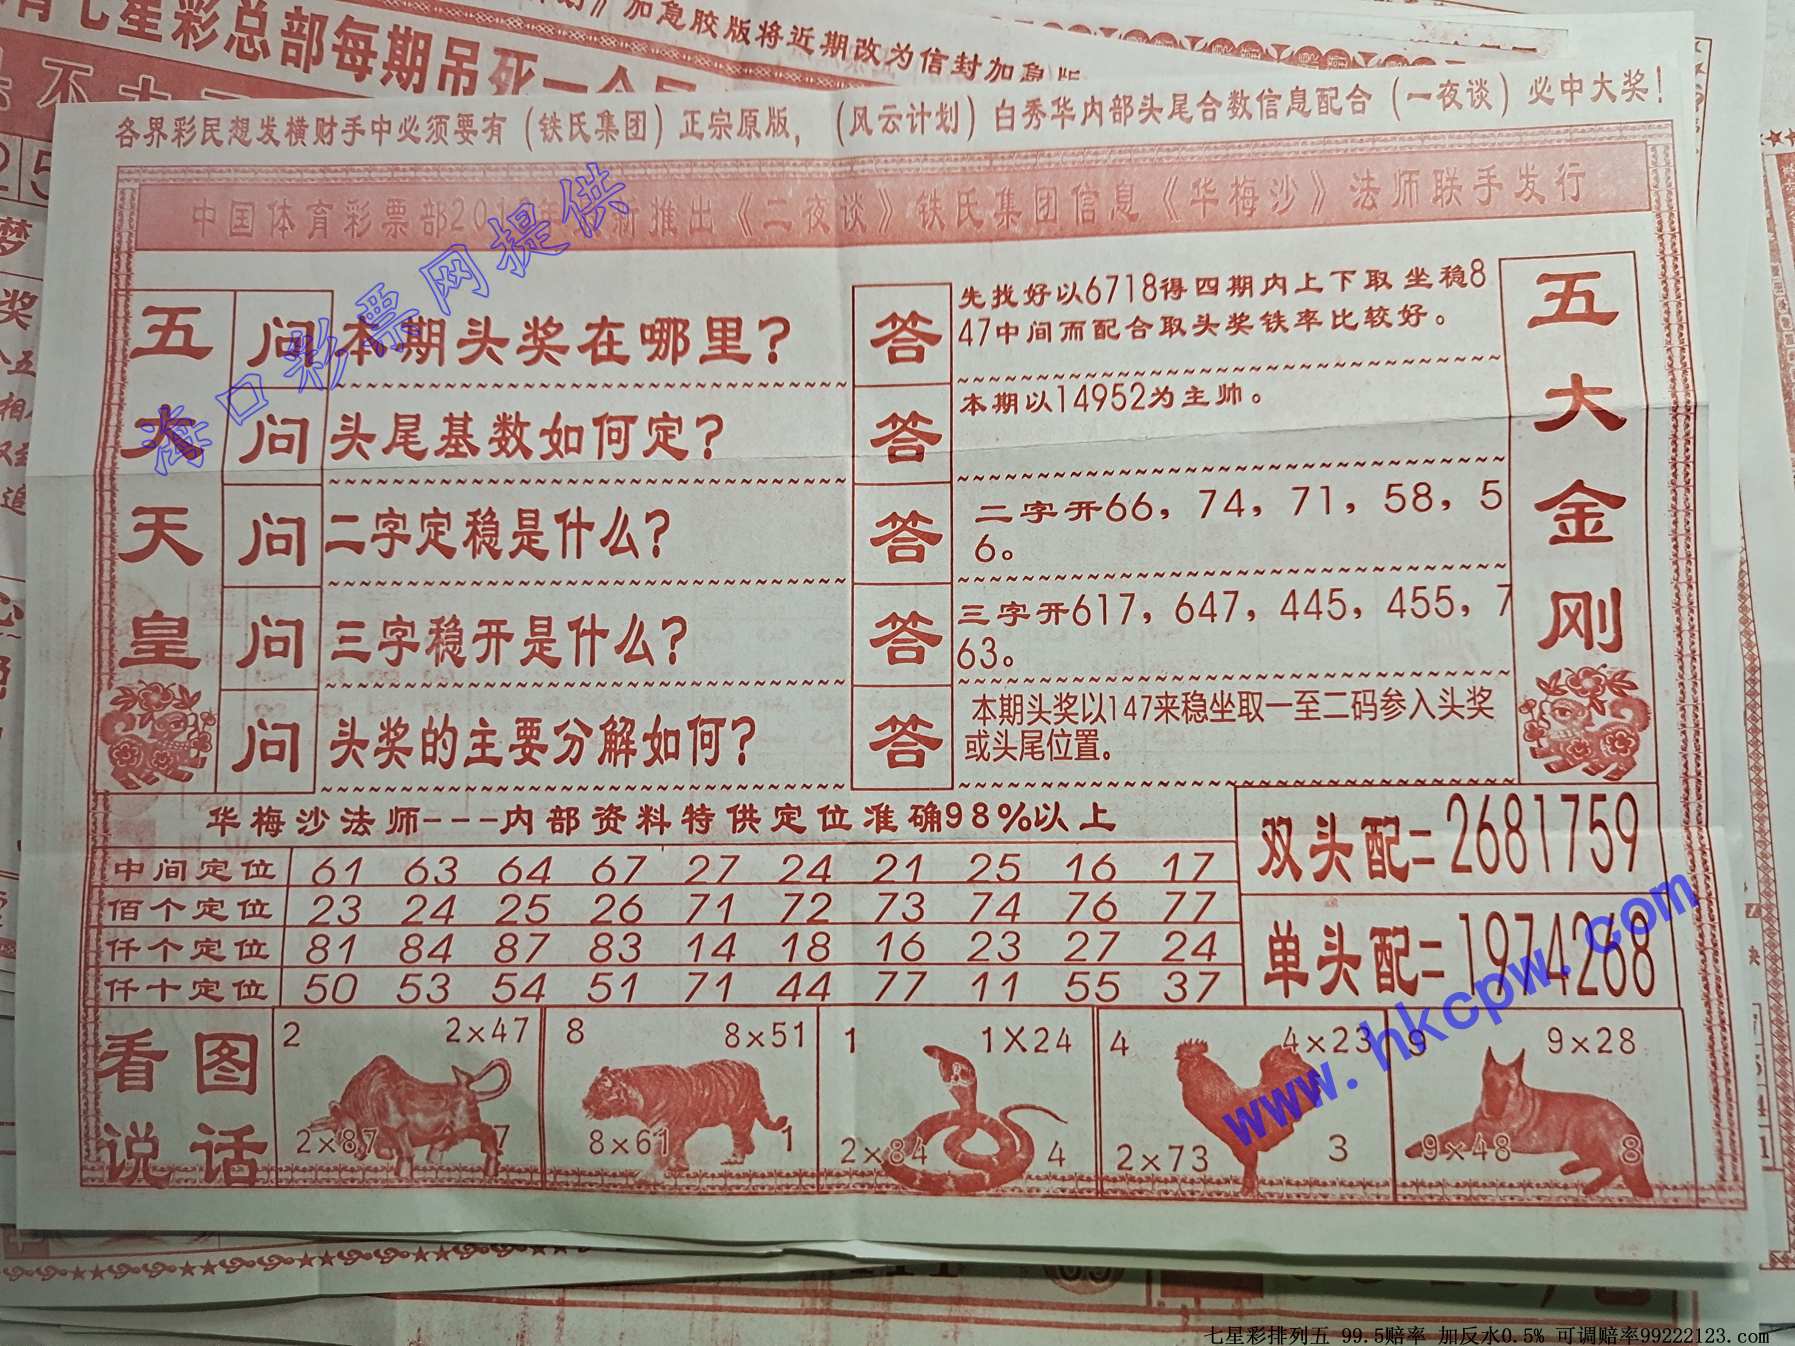 七星彩总部每期吊死一个
》加急胶版将近期改为信封加急版
各界彩民想发横财手中必须要有（铁氏集团）正宗原版，（风云计划）白秀华内部头尾合数信息配合（一夜谈）必中大奖！
中国体育彩票部201 新推出《二夜谈》铁氏集团信息《华梅沙》法师联手发行
海口彩票网提供
五大天皇
问 本期头奖在哪里？
答 先找好以6718得四期内上下取坐稳8
47中间而配合取头奖铁率比较好。
问 头尾基数如何定？
答 本期以14952为主帅。
问 二字定稳是什么？
答 二字开66，74，71，58，5
6。
问 三字稳开是什么？
答 三字开617，647，445，455，7
63。
问 头奖的主要分解如何？
答 本期头奖以147来稳坐取一至二码参入头奖
或头尾位置。
五大金刚
华梅沙法师---内部资料特供定位准确98%以上
中间定位 61 63 64 67 27 24 21 25 16 17
佰个定位 23 24 25 26 71 72 73 74 76 77
仟个定位 81 84 87 83 14 18 16 23 27 24
仟十定位 50 53 54 51 71 44 77 11 55 37
双头配=2681759
单头配=1974268
www.hkcpw.com
看图
说话
2 2×47
2×87 7
8 8×51
8×61 1
1 1X24
2×84 4
4 4×23
2×73 3
9 9×28
9×48 8
七星彩排列五 99.5赔率 加反水0.5% 可调赔率99222123.com